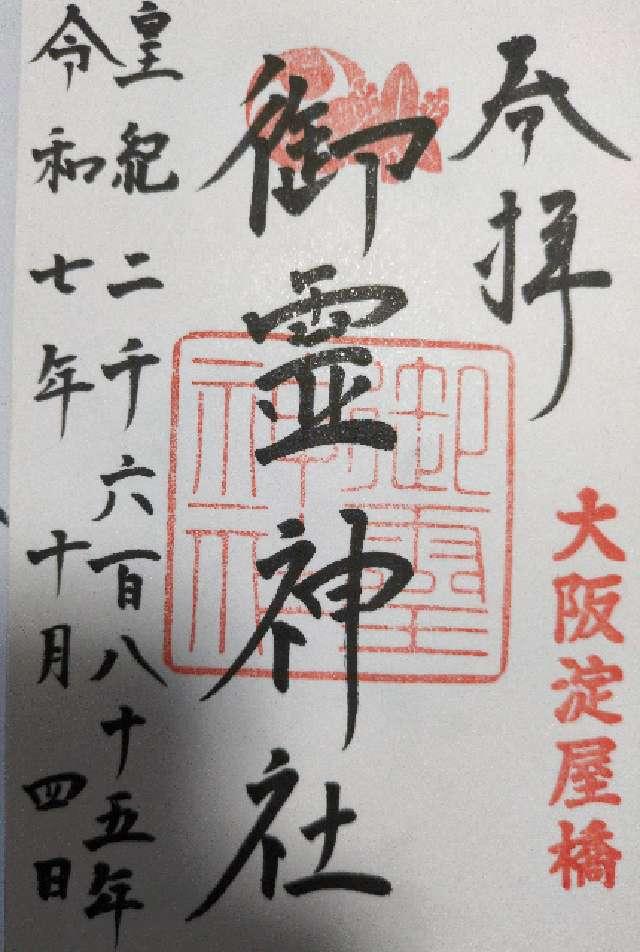 奉拝
大阪淀屋橋
御霊神社
御霊神社
皇紀二千六百八十五年
令和七年十月四日